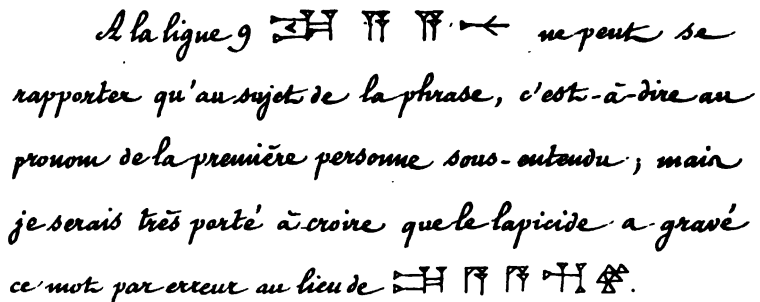 A la ligne 9 ne peut se
rapporter qu'au sujet de la phrase, c'est-à-dire au
pronom de la première personne sous-entendu ; mais
je serais très porté à croire que le lapicide a gravé
ce mot par erreur au lieu de .